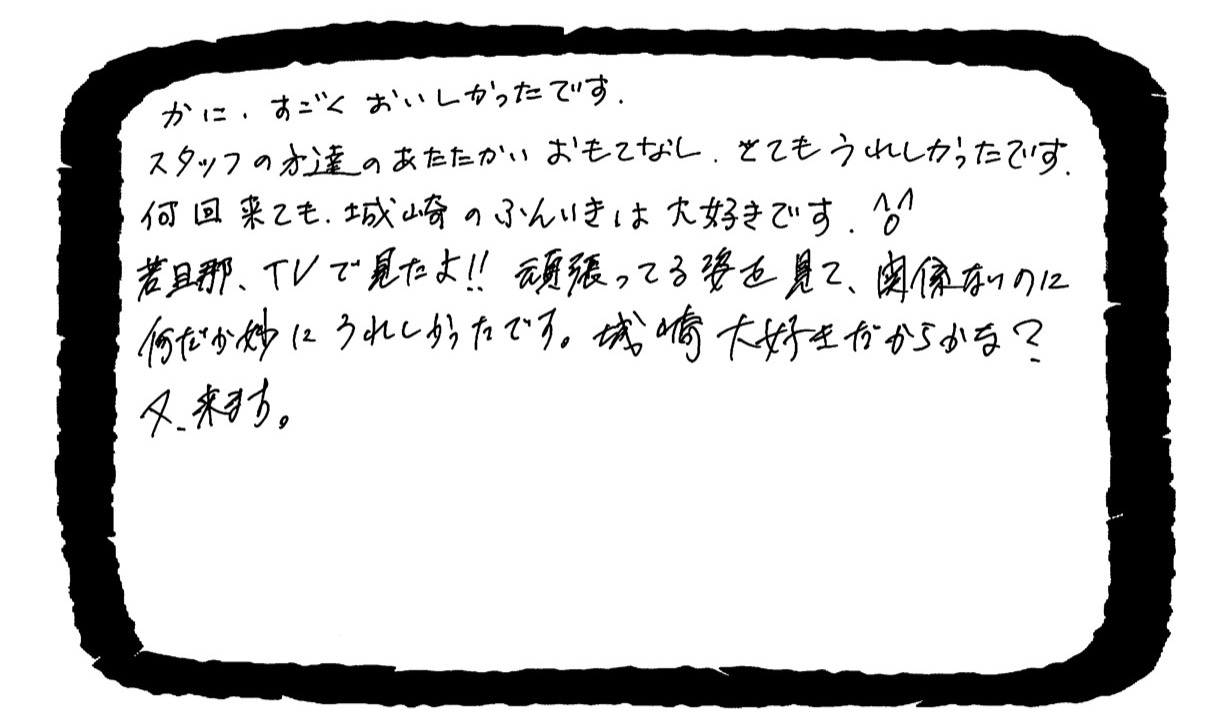 かに、すごくおいしかったです.
スタッフの方達のあたたかいおもてなし、とてもうれしかったです.
何回来ても、城崎のふんいきは大好きです. ^o^
若旦那、TVで見たよ!! 頑張ってる姿を見て、関係ないのに
何だか妙にうれしかったです。城崎大好きだからかな?
又、来ます。